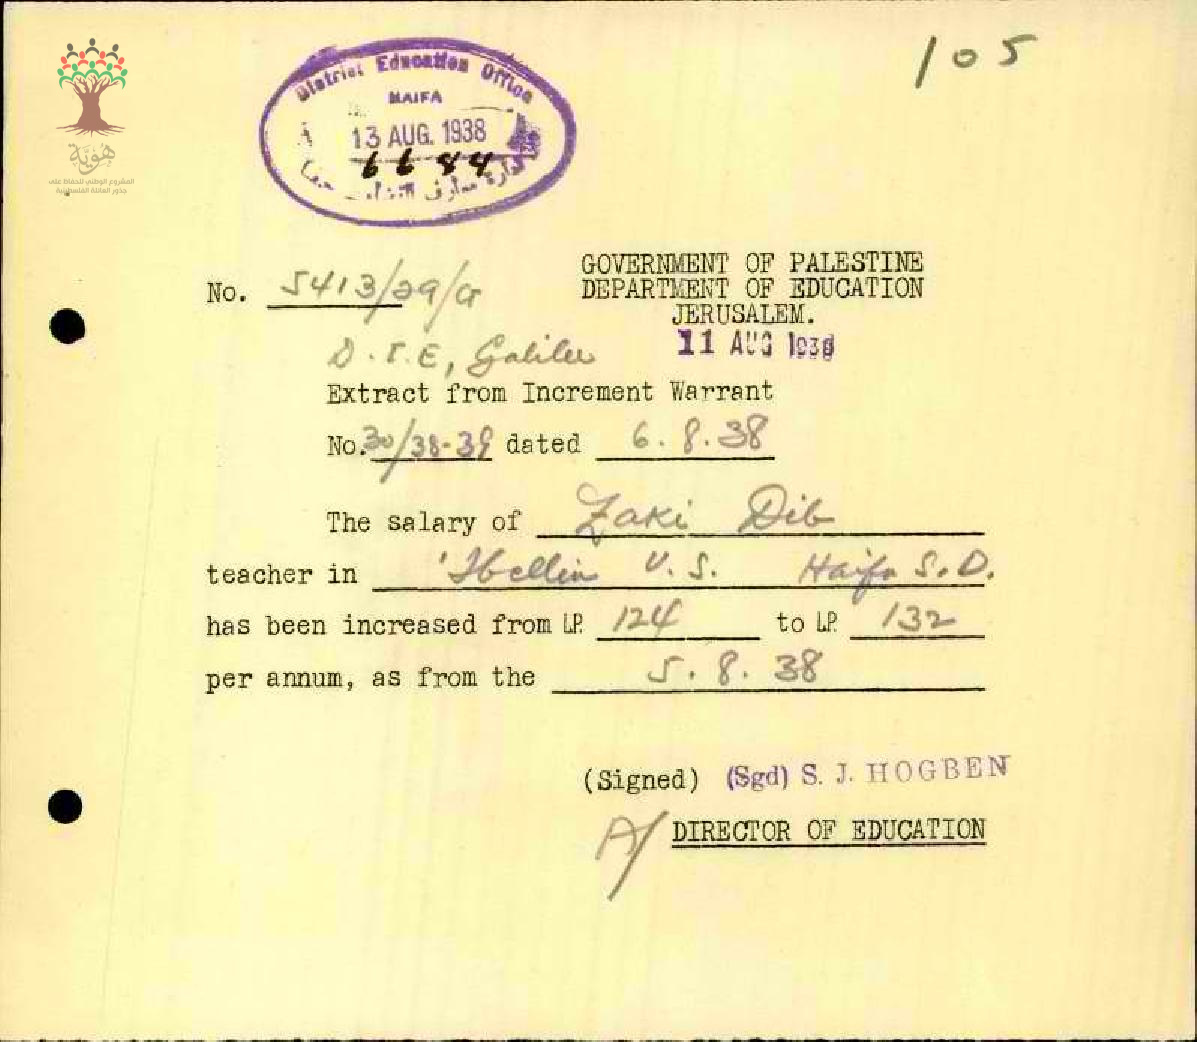 105
District Education Office
HAIFA
13 AUG. 1938
6684
هُوِيَّة
المشروع الوطني للحفاظ على
جذور العائلة الفلسطينية
GOVERNMENT OF PALESTINE
DEPARTMENT OF EDUCATION
JERUSALEM.
No. 5413/29/G
11 AUG 1938
D.I.E, Galilee
Extract from Increment Warrant
No. 30/38-39 dated 6.8.38
The salary of Zaki Dib
teacher in 'Ibellin V.S. Haifa S.D.
has been increased from LP. 124 to LP. 132
per annum, as from the 5.8.38
(Signed) (Sgd) S. J. HOGBEN
A/ DIRECTOR OF EDUCATION